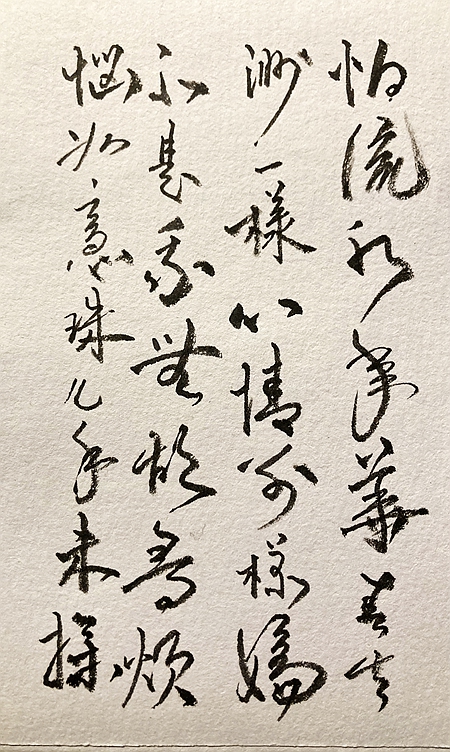 怕流水年華春去
渺一樣心情別樣嬌
不是我無故尋煩
惱如意珠儿手未操